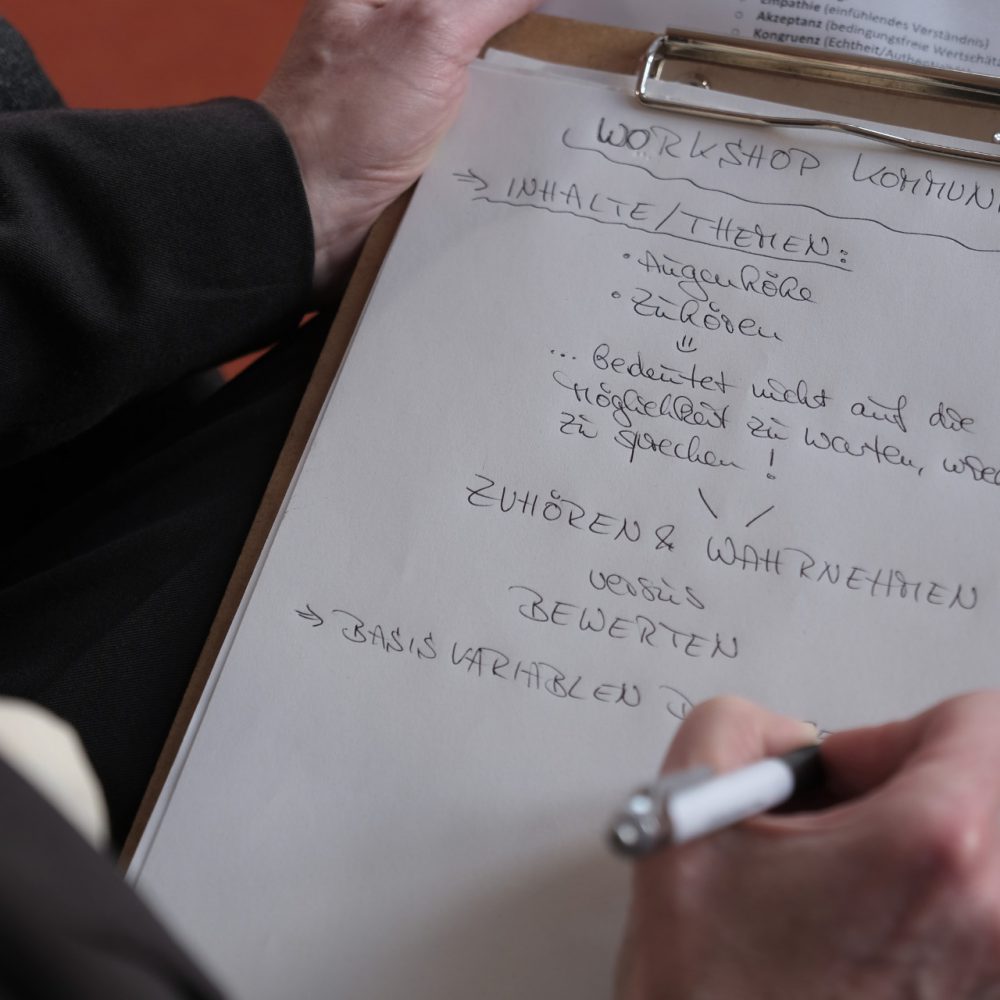 Empathie (einfühlendes Verständnis)
○ Akzeptanz (bedingungsfreie Wertschätz
○ Kongruenz (Echtheit/Authentizität)
WORKSHOP KOMMUNI
⇒ INHALTE/THEMEN:
• Augenhöhe
• Zuhören
... Bedeutet nicht auf die
Möglichkeit zu warten, wied
zu sprechen!
ZUHÖREN & WAHRNEHMEN
versus
BEWERTEN
⇒ BASISVARIABLEN D